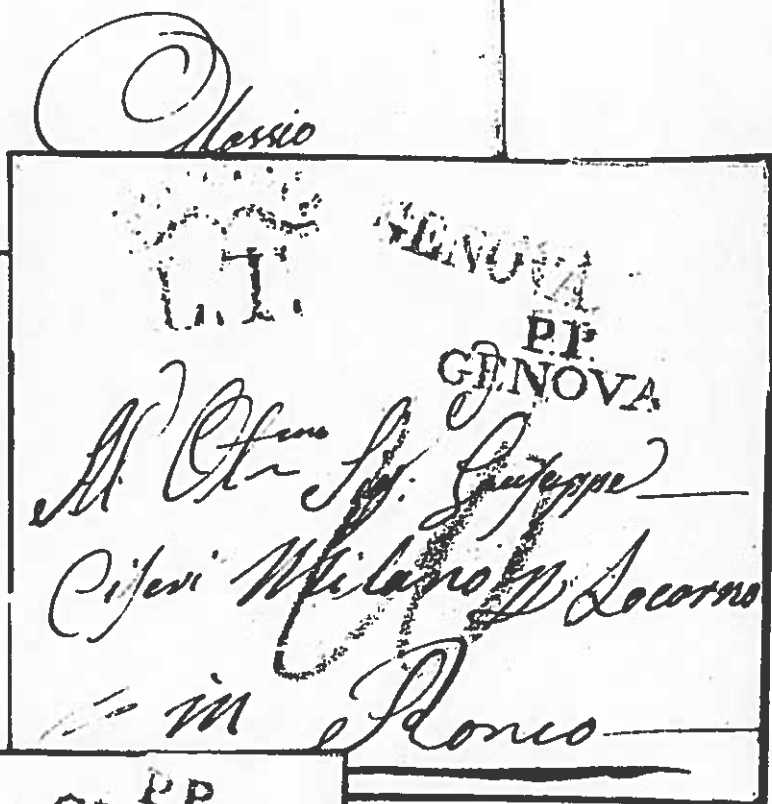 Alassio
L.T.
GENOVA
P.P.
GENOVA
Al Sig. Giuseppe
Milano p Locarno
in Ronco
P.P.